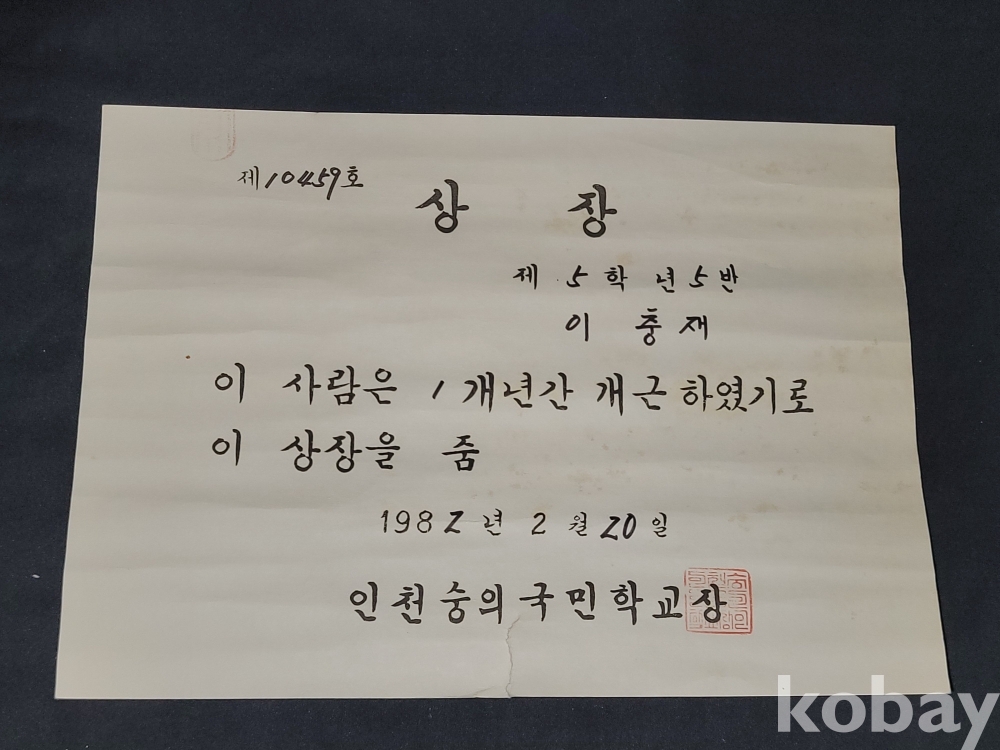 제10459호
상 장
제 5 학 년 5 반
이 충 재
이 사람은 1 개년간 개근 하였기로
이 상장을 줌
1982 년 2 월 20 일
인천숭의국민학교장
kobay